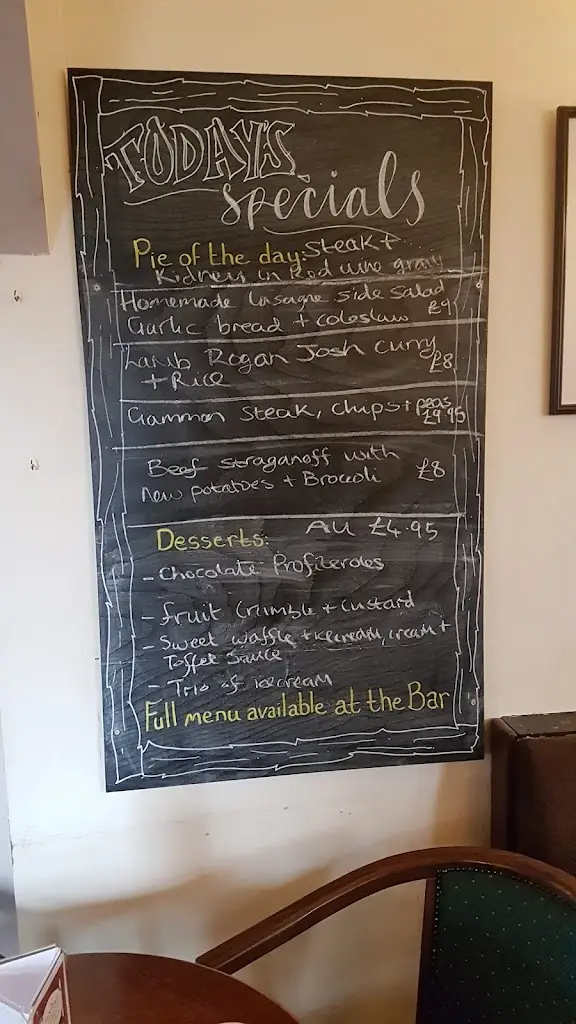 TODAY'S
specials
Pie of the day: Steak +
Kidney in Red wine gravy
Homemade lasagne side salad
Garlic bread + coleslaw £9
Lamb Rogan Josh curry
+ Rice £8
Gammon Steak, chips + peas
£9.95
Beef straganoff with
New potatoes + Brocoli £8
Desserts: All £4.95
- Chocolate Profiteroles
- Fruit Crumble + Custard
- Sweet waffle + icecream, cream +
Toffee Sauce
- Trio of icecream
Full menu available at the Bar